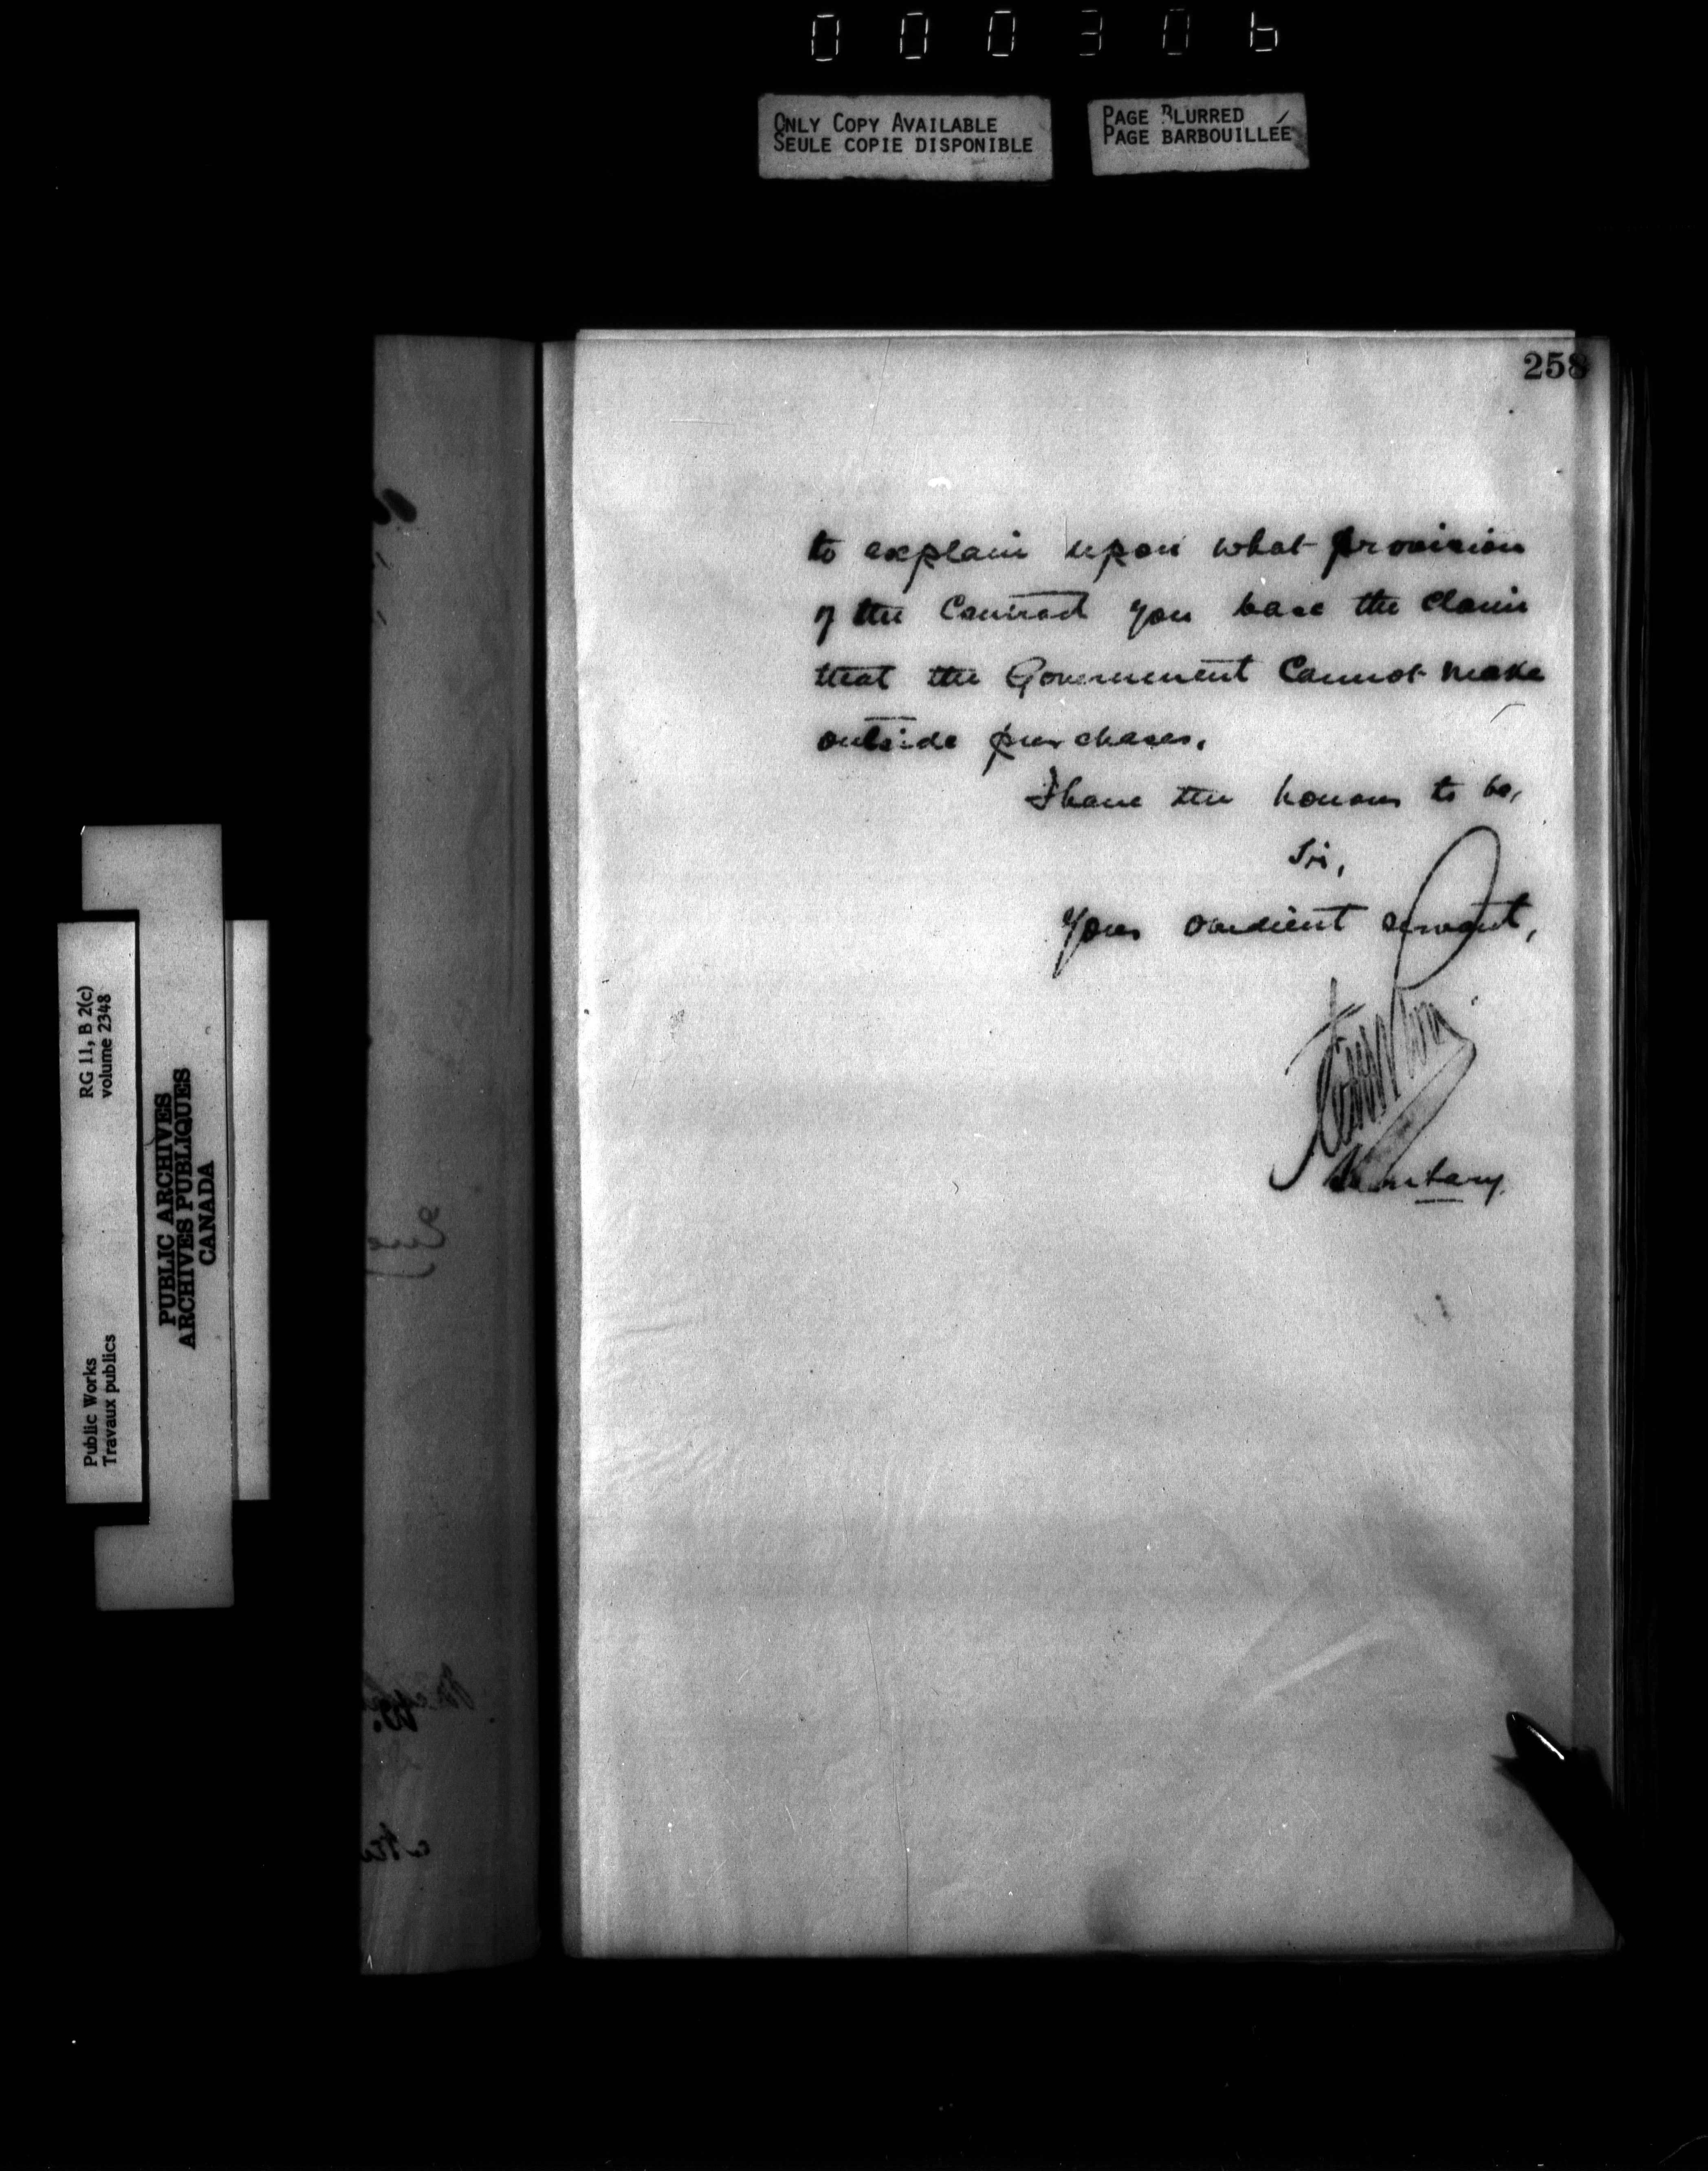 000306
ONLY COPY AVAILABLE
SEULE COPIE DISPONIBLE
PAGE BLURRED
PAGE BARBOUILLÉE
258
to explain upon what provision
of the Contract you base the claim
that the Government Cannot make
outside purchases.
I have the honour to be,
Sir,
Your obedient servant,
Secretary.
RG 11, B 2(c)
volume 2348
Public Works
Travaux publics
PUBLIC ARCHIVES
ARCHIVES PUBLIQUES
CANADA